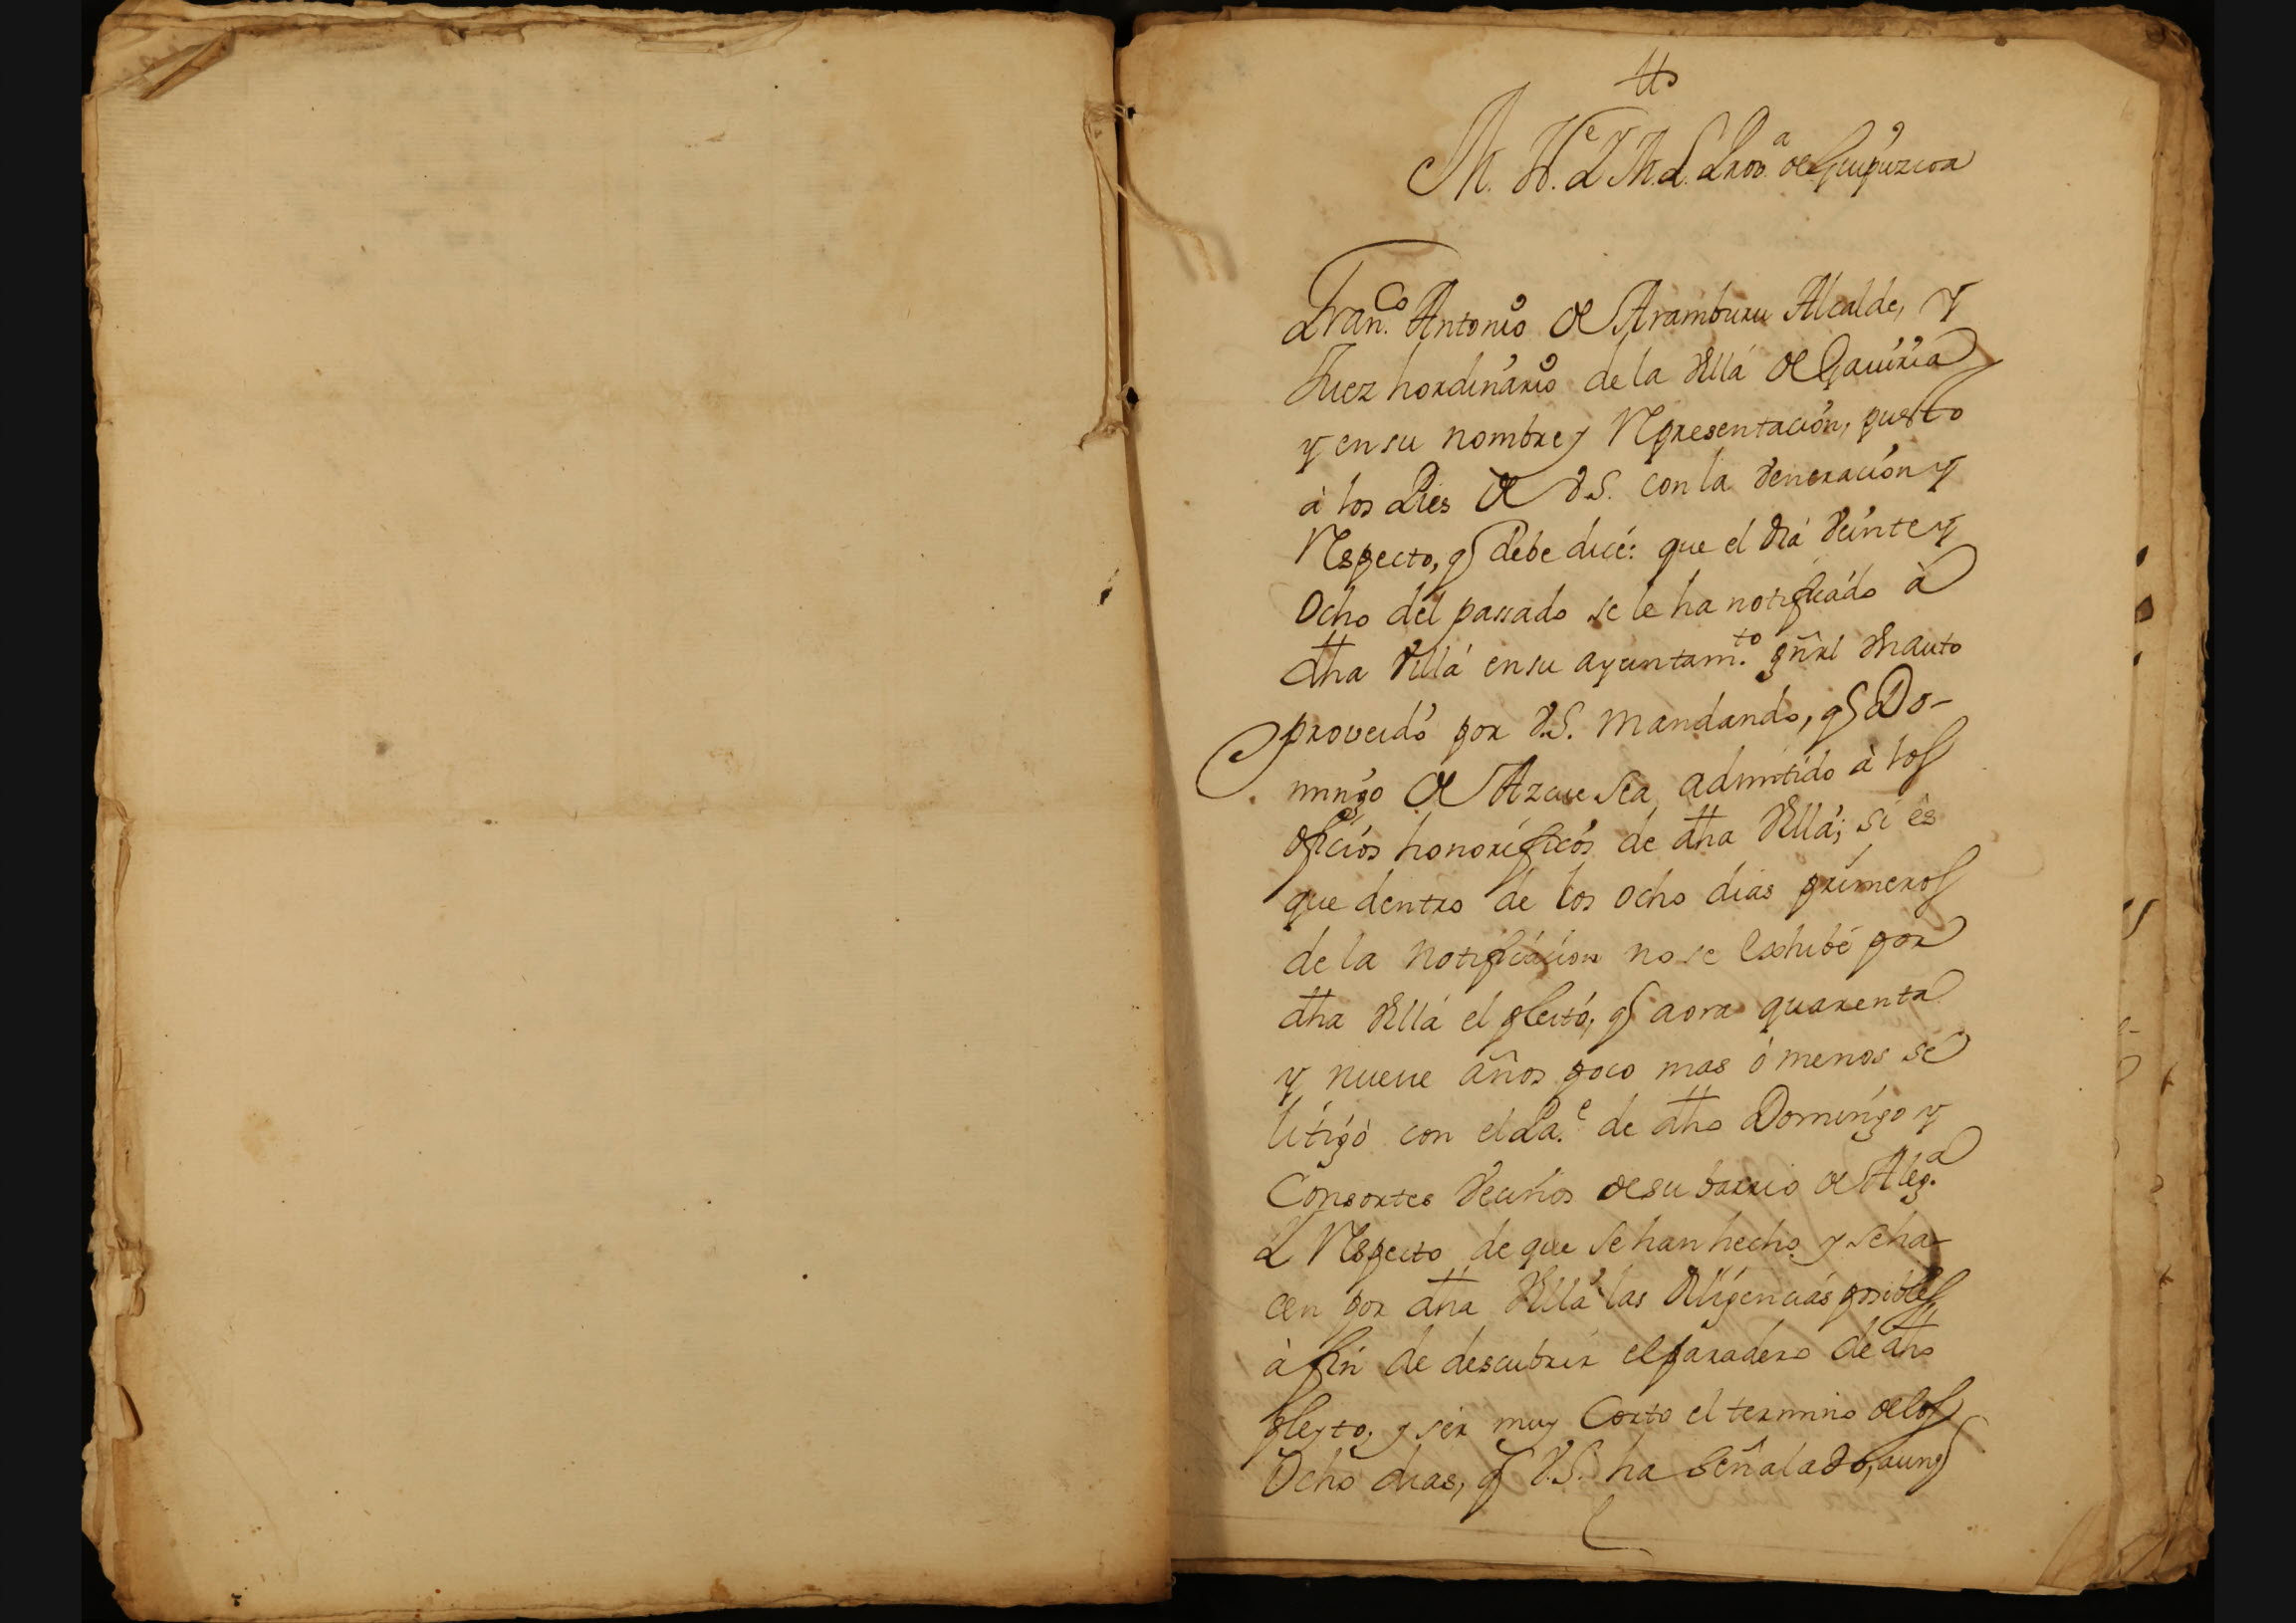 M. N.e Y M. L. Prov.a de Guipuzcoa
Fran.co Antonio de Aramburu Alcalde, y
Juez hordinario de la Villa de Gaviria
y en su nombre y Representacion, puesto
à los Pies de V.S. con la Veneracion y
Respecto, q debe dice: que el dia Veinte y
Ocho del passado se le ha notificado à
dha Villa en su ayuntam.to gñrl Un auto
proveido por V.S. mandando, q Do-
mingo de Azcue sea admitido à los
oficios honorificos de dha Villa; si es
que dentro de los ocho dias primeros
de la notificacion no se Exhibe por
dha Villa el pleito, q aora quarenta
y nueve años poco mas ò menos se
litigò con el Pa.e de dho Domingo y
Consortes Vecinos de su barrio de Aleg.a
Y Respecto de que se han hecho y se ha-
cen por dha Villa las Diligencias posibles
à fin de descubrir el paradero de dho
pleyto, y ser muy Corto el termino de los
Ocho dias, q V.S. ha señalado, aunq